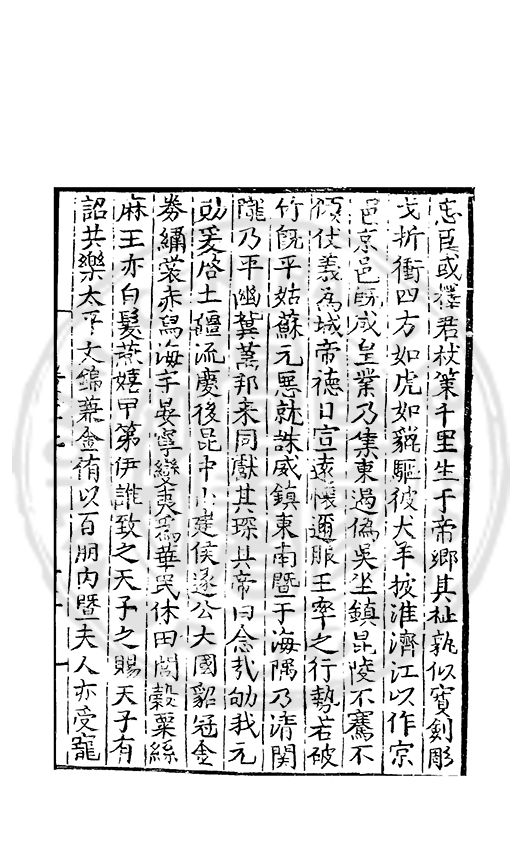 忠臣或擇君杖策千里生于帝鄉其祉孰似寶劍彫
戈折衝四方如虎如貔驅彼犬羊披淮濟江以作京
邑京邑既咸皇業乃集東遏偽吳坐鎮昆陵不騫不
傾仗義為城帝德日宣遠懷邇服王率之行勢若破
竹既平姑蘇元惡就誅威鎮東南暨于海隅乃清関
隴乃平幽冀萬邦来同獻其琛共帝曰念哉劬我元
勛爰啓土疆流慶後昆中山建侯遂公大國貂冠金
券繡裳赤舄海宇晏寧變夷爲華民休田閭穀粟絲
麻王亦白髮燕嬉甲第伊誰致之天子之賜天子有
詔共樂太平文錦兼金侑以百朋内暨夫人亦受寵